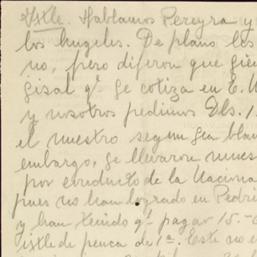 Ixtle. Hablamos Pereyra y
los Angeles. De plano los
no, pero dijeron que
gisal q' se cotiza en E.
y nosotros pedimos Dls. 1
el nuestro segun sea
embargo, se llevaron
por conducto de la Nacional
pues no han logrado en Pedri
y han tenido q' pagar 15.-
ixtle de penca de 1ª. Este no e